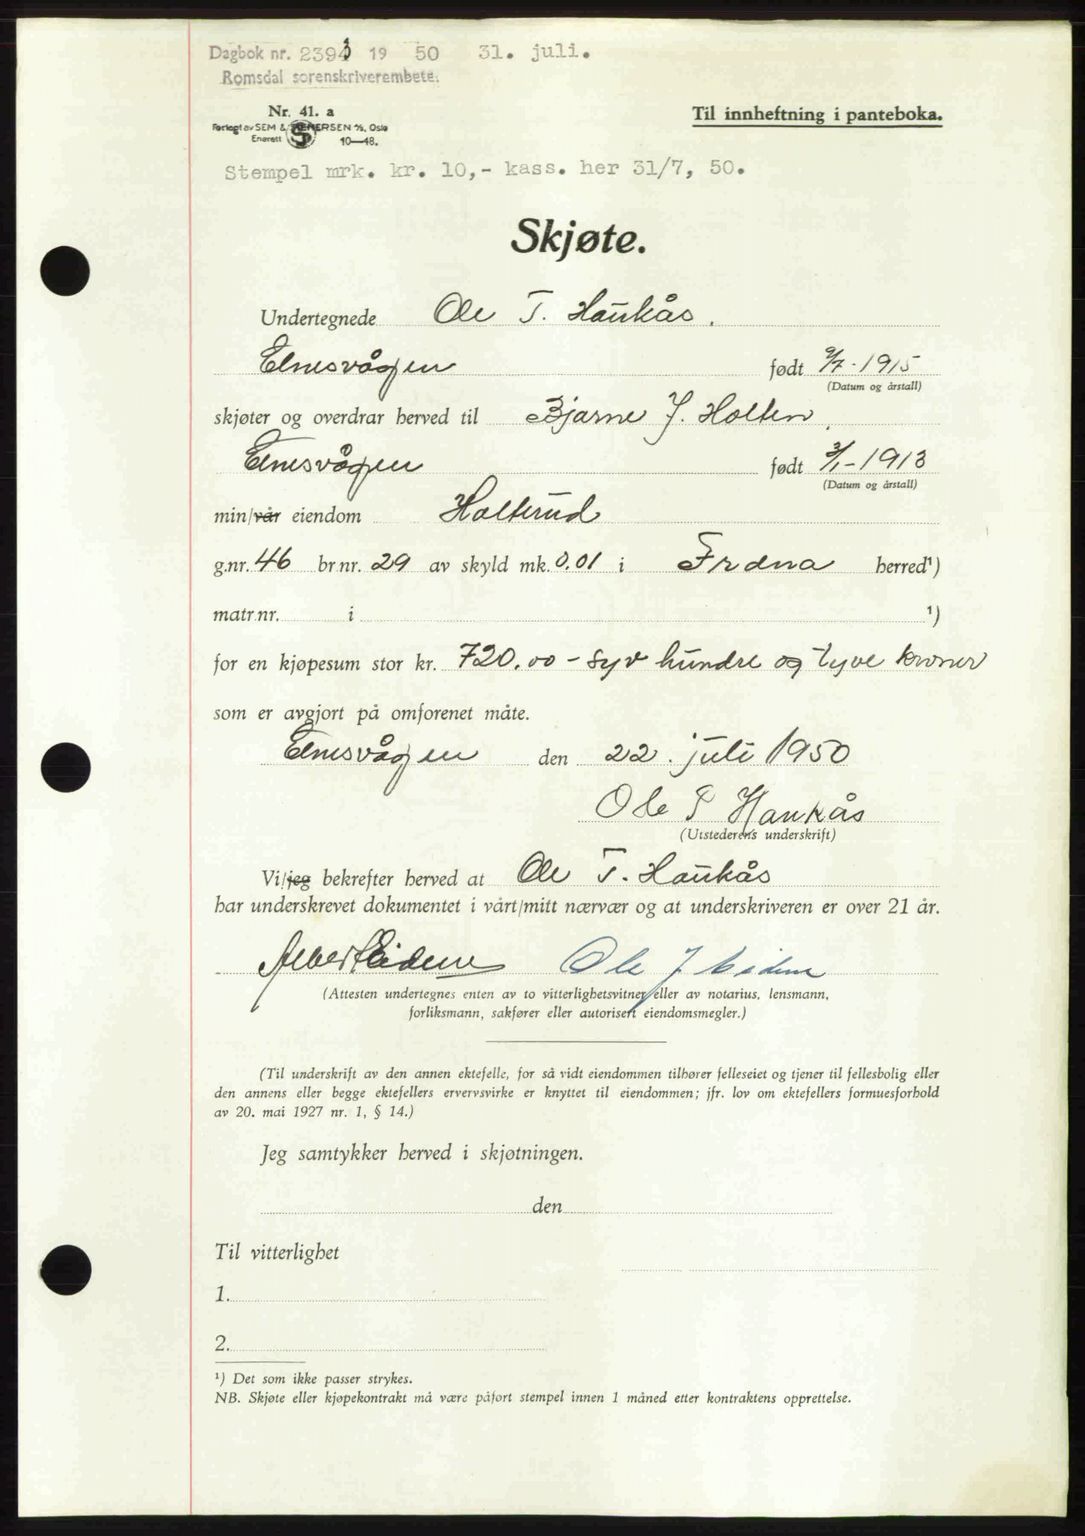 Dagbok nr. 2393 19 50 31. juli.
Romsdal sorenskriverembete.
Nr. 41. a
Til innheftning i panteboka.
Forlagt av SEM & STENERSEN A/S, Oslo
Enerett 10—48.
Stempel mrk. kr. 10,- kass. her 31/7, 50.
Skjøte.
Undertegnede Ole T. Haukås.
Elnesvågen født 9/7-1915
(Datum og årstall)
skjøter og overdrar herved til Bjarne J. Holten,
Elnesvågen født 3/1-1913
(Datum og årstall)
min/vår eiendom Holterud
g.nr. 46 br.nr. 29 av skyld mk. 0.01 i Fræna herred¹)
matr.nr. i ¹)
for en kjøpesum stor kr. 720.00 - syv hundre og tyve kroner
som er avgjort på omforenet måte.
Elnesvågen den 22. juli 1950
Ole T Haukås
(Utstederens underskrift)
Vi/jeg bekrefter herved at Ole T. Haukås
har underskrevet dokumentet i vårt/mitt nærvær og at underskriveren er over 21 år.
Albert Eidem Ole J Eidem
(Attesten undertegnes enten av to vitterlighetsvitner eller av notarius, lensmann,
forliksmann, sakfører eller autorisert eiendomsmegler.)
(Til underskrift av den annen ektefelle, for så vidt eiendommen tilhører felleseiet og tjener til fellesbolig eller
den annens eller begge ektefellers ervervsvirke er knyttet til eiendommen; jfr. lov om ektefellers formuesforhold
av 20. mai 1927 nr. 1, § 14.)
Jeg samtykker herved i skjøtningen.
den
Til vitterlighet
1.
2.
¹) Det som ikke passer strykes.
NB. Skjøte eller kjøpekontrakt må være påført stempel innen 1 måned etter kontraktens opprettelse.